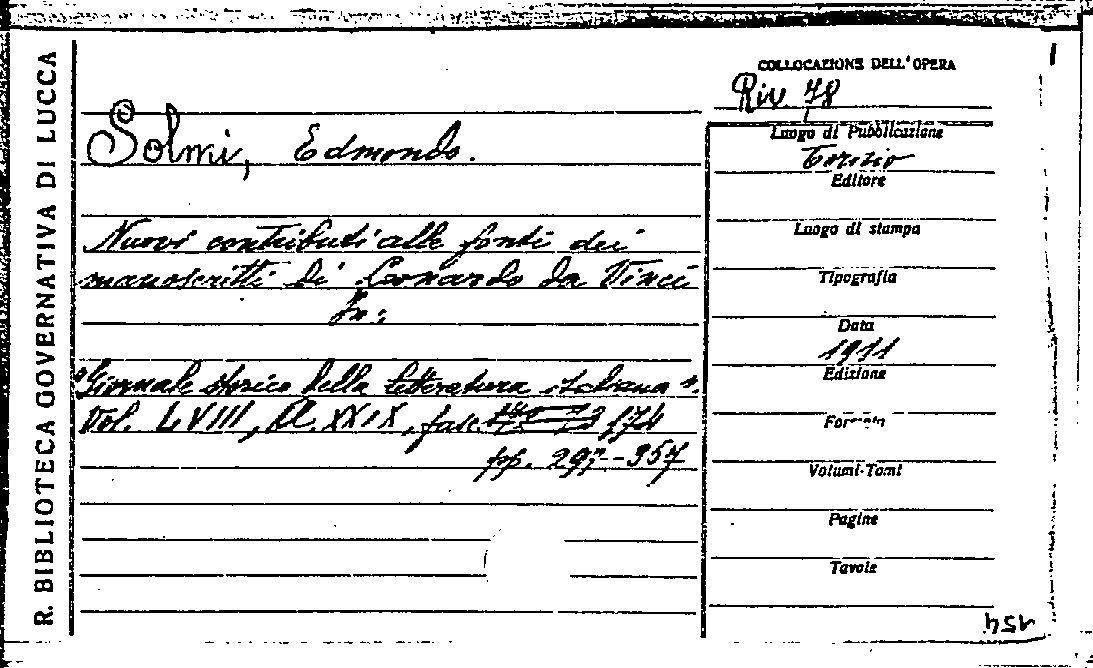 R. BIBLIOTECA GOVERNATIVA DI LUCCA
Solmi, Edmondo.
Nuovi contributi alle fonti dei
manoscritti di Leonardo da Vinci
In:
"Giornale storico della letteratura italiana".
Vol. LVIII, A. XXIX, fasc. 174
pp. 297-357
COLLOCAZIONE DELL'OPERA
Riv. 78
Luogo di Pubblicazione
Torino
Editore
Luogo di stampa
Tipografia
Data
1911
Edizione
Formato
Volumi-Tomi
Pagine
Tavole
154